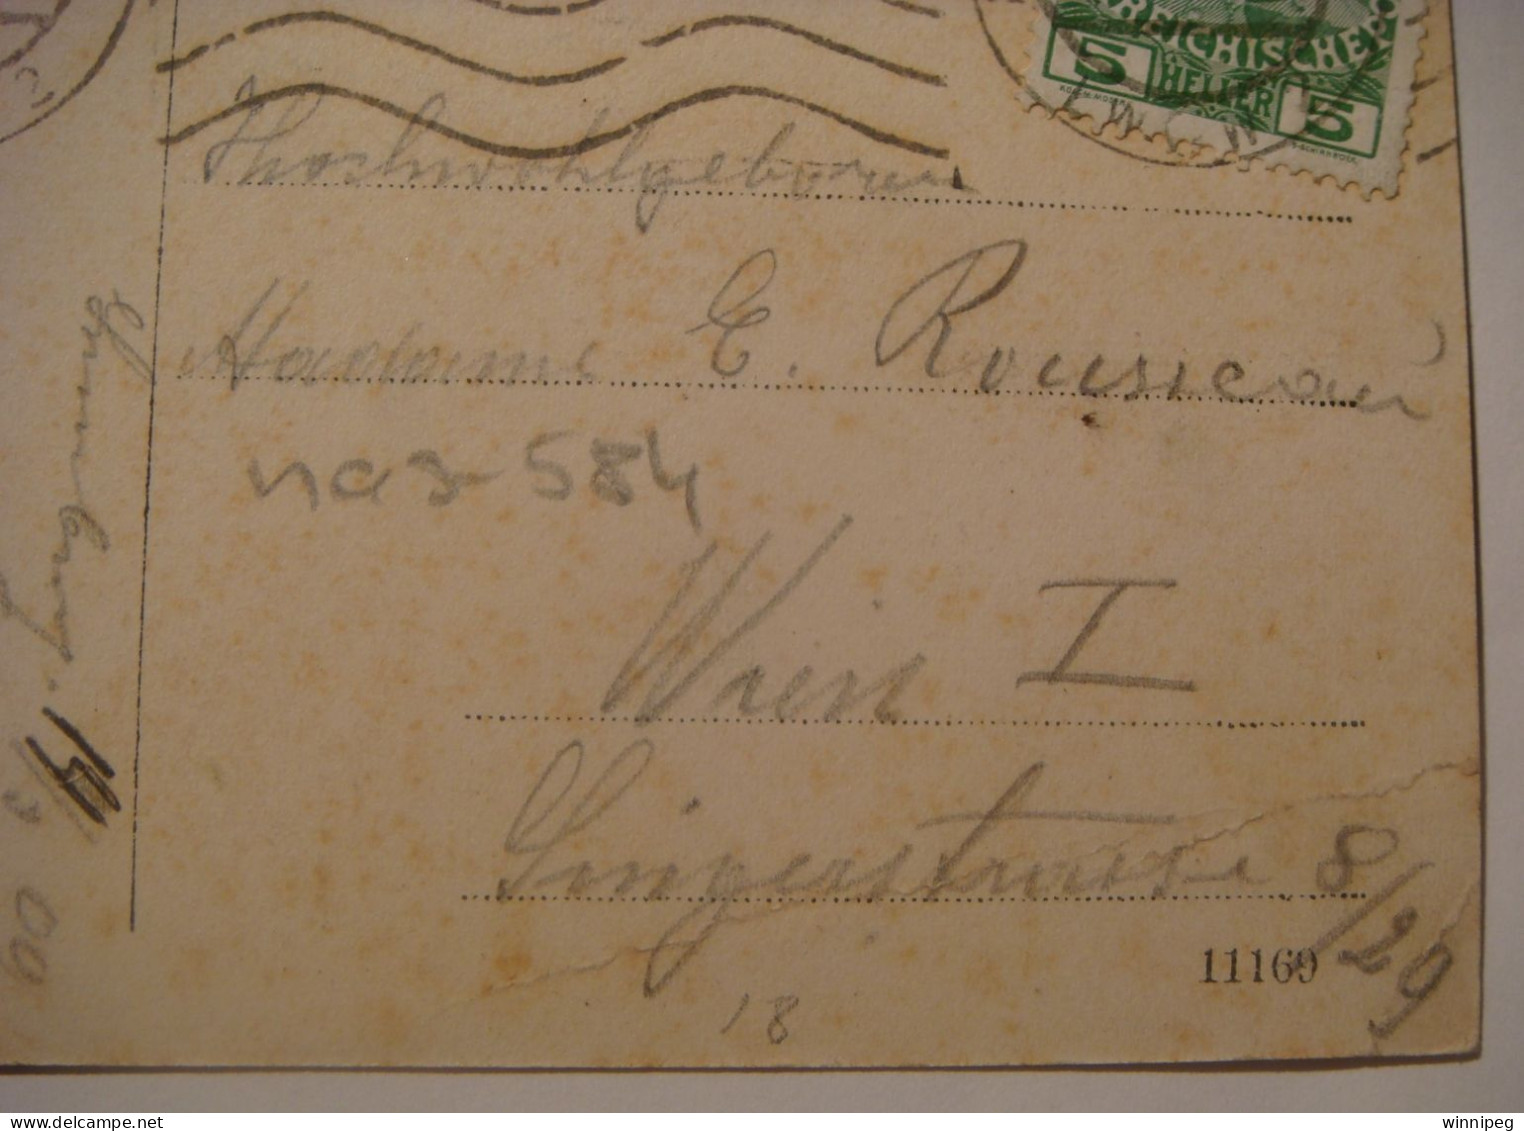 REICHISCHE
5 HELLER 5
Hochwohlgeboren
Madame E. Rousseau
nas-584
Wien I
Singerstrasse 8/29
11169
18
winnipeg